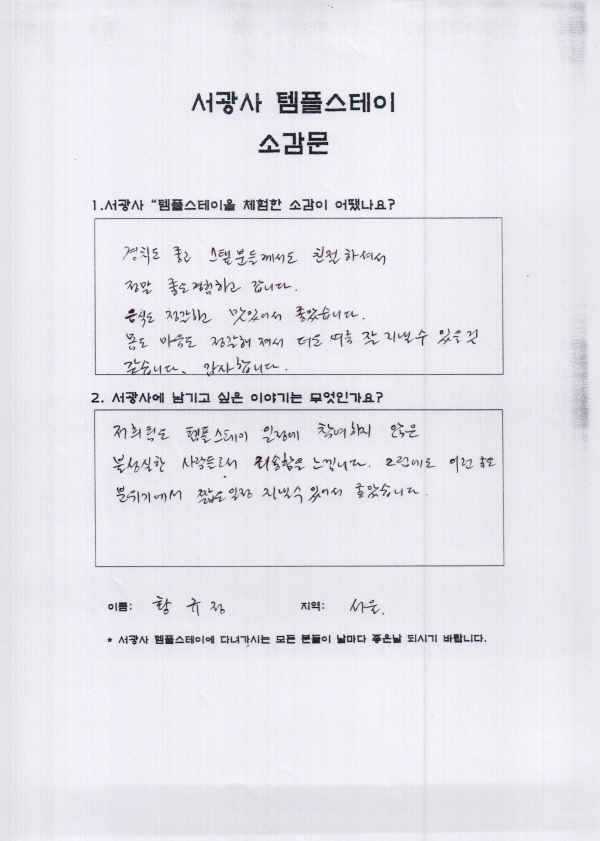 서광사 템플스테이
소감문
1.서광사 "템플스테이을 체험한 소감이 어땠나요?
경치도 좋고 스텝분들께서도 친절하셔서
정말 좋은경험하고 갑니다.
음식도 정갈하고 맛있어서 좋았습니다.
몸도 마음도 정갈해져서 더운 여름 잘 지낼수 있을것
같습니다. 감사합니다.
2. 서광사에 남기고 싶은 이야기는 무엇인가요?
저희 템플스테이 일정에 참여하지 않은
불성실한 사람들로서 죄송함을 느낍니다. 그럼에도 이런 좋은
분위기에서 짧은일정 지낼수 있어서 좋았습니다.
이름: 황규정 지역: 서울.
* 서광사 템플스테이에 다녀가시는 모든 분들이 날마다 좋은날 되시기 바랍니다.